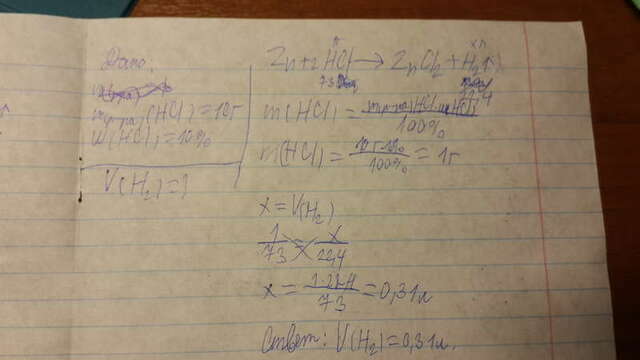 Дано:
m р-ра (HCl) = 10г
ω(HCl) = 10%
V(H₂) = ?
1г x л
Zn + 2HCl → ZnCl₂ + H₂↑
73 22,4
m(HCl) = m р-ра(HCl)·ω(HCl) / 100%
m(HCl) = 10г·10% / 100% = 1г
x = V(H₂)
1/73 = x/22,4
x = 1·22,4 / 73 = 0,31л
Ответ: V(H₂) = 0,31л.